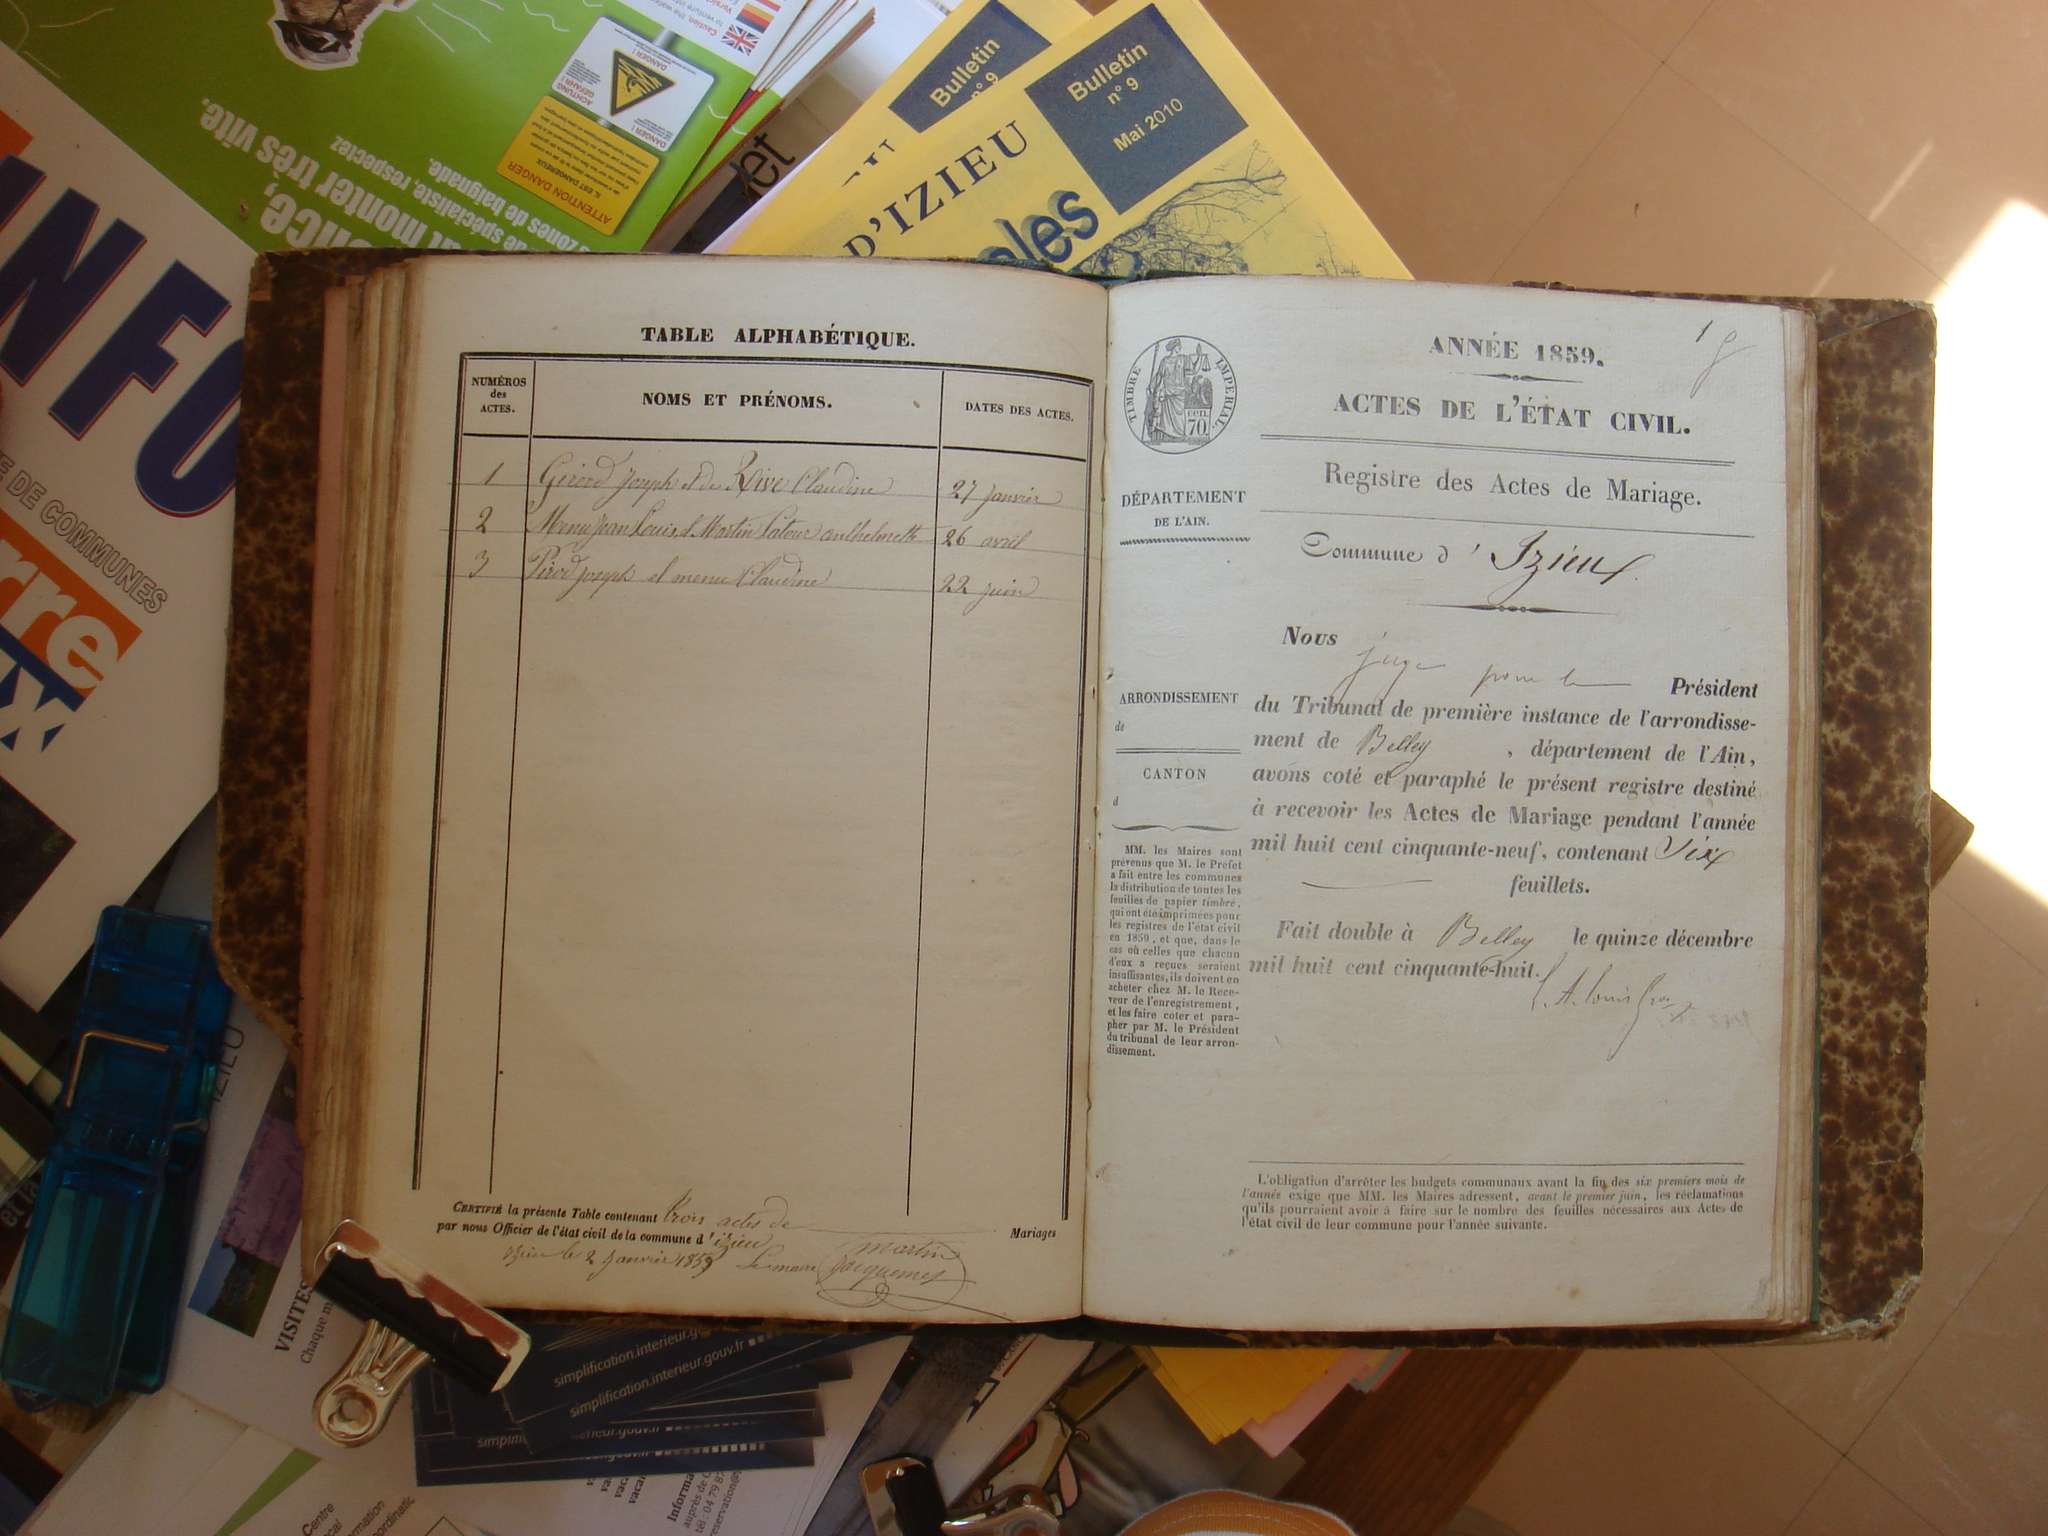 Bulletin
n° 9
Bulletin
n° 9
Mai 2010
D'IZIEU
ATTENTION DANGER
IL EST DANGEREUX
DANGER !
ACHTUNG
GEFAHR !
DANGER !
monter très vite.
spécialiste, respectez
zones de baignade.
INFO
E DE COMMUNES
rre
TABLE ALPHABÉTIQUE.
NUMÉROS
des
ACTES.
NOMS ET PRÉNOMS.
DATES DES ACTES.
1 Joseph et de Rive Claudine 27 janvier
2 Menu Jean Louis et Martin Latour anthelmette 26 avril
3 joseph et menu Claudine 22 juin
CERTIFIÉ la présente Table contenant trois actes de Mariages
par nous Officier de l'état civil de la commune d'izieu
izieu le 2 janvier 1859 Le maire Martin
Jacquemet
ANNÉE 1859.
1
ACTES DE L'ÉTAT CIVIL.
Registre des Actes de Mariage.
Commune d'Izieu
TIMBRE IMPERIAL.
cen.
70.
DÉPARTEMENT
DE L'AIN.
ARRONDISSEMENT
de
CANTON
d
MM. les Maires sont
prévenus que M. le Préfet
a fait entre les communes
la distribution de toutes les
feuilles de papier timbré,
qui ont été imprimées pour
les registres de l'état civil
en 1859, et que, dans le
cas où celles que chacun
d'eux a reçues seraient
insuffisantes, ils doivent en
acheter chez M. le Rece-
veur de l'enregistrement,
et les faire coter et para-
pher par M. le Président
du tribunal de leur arron-
dissement.
Nous juge pour le Président
du Tribunal de première instance de l'arrondisse-
ment de Belley, département de l'Ain,
avons coté et paraphé le présent registre destiné
à recevoir les Actes de Mariage pendant l'année
mil huit cent cinquante-neuf, contenant Six
feuillets.
Fait double à Belley le quinze décembre
mil huit cent cinquante-huit.
L'obligation d'arrêter les budgets communaux avant la fin des six premiers mois de
l'année exige que MM. les Maires adressent, avant le premier juin, les réclamations
qu'ils pourraient avoir à faire sur le nombre des feuilles nécessaires aux Actes de
l'état civil de leur commune pour l'année suivante.
IZIEU
VISITES
Chaque m
simplification.interieur.gouv.fr
simplification.interieur.gouv.fr
Informa
auprès de
tél : 04 79 87
Centre